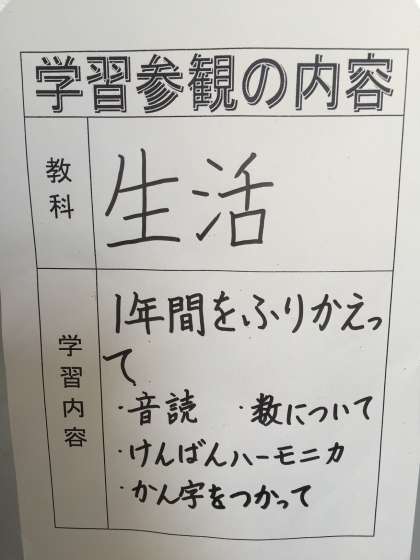 学習参観の内容
教科
生活
学習内容
1年間をふりかえっ
て
・音読 ・数について
・けんばんハーモニカ
・かん字をつかって